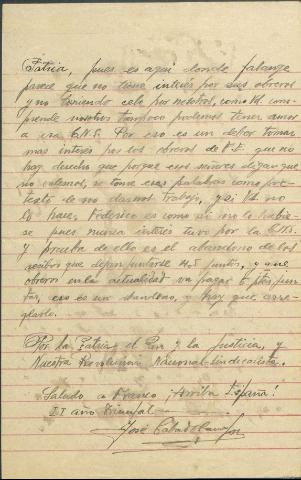 Patria, pues es aqui donde falange
parece que no tiene interés por sus obreros
y no teniendo celo por nosotros, como Vd. com-
prende nosotros tampoco podemos tener amor
a esa C.N.S. Por eso es un deber tomar
mas interés por los obreros de F.E. que no
hay derecho que porque esos señores digan que
no valemos, se tome esas palabras como pre-
texto de no darnos trabajo, y si Vd. no
lo hace, Federico es como si no lo hubie-
se pues nunca interés tuvo por la CNS.
y prueba de ello es el abandono de los
que dejan juntarse 4 o 5 juntos, y que
obreros en la actualidad va pagar 6 ptas jun-
tas, eso es un y hay que arre-
glarlo.
Por la Patria, el Pan y la Justicia, y
Nuestra Revolucion Nacional-Sindicalista.
Saludo a Franco ¡Arriba España!
II año Triunfal
José